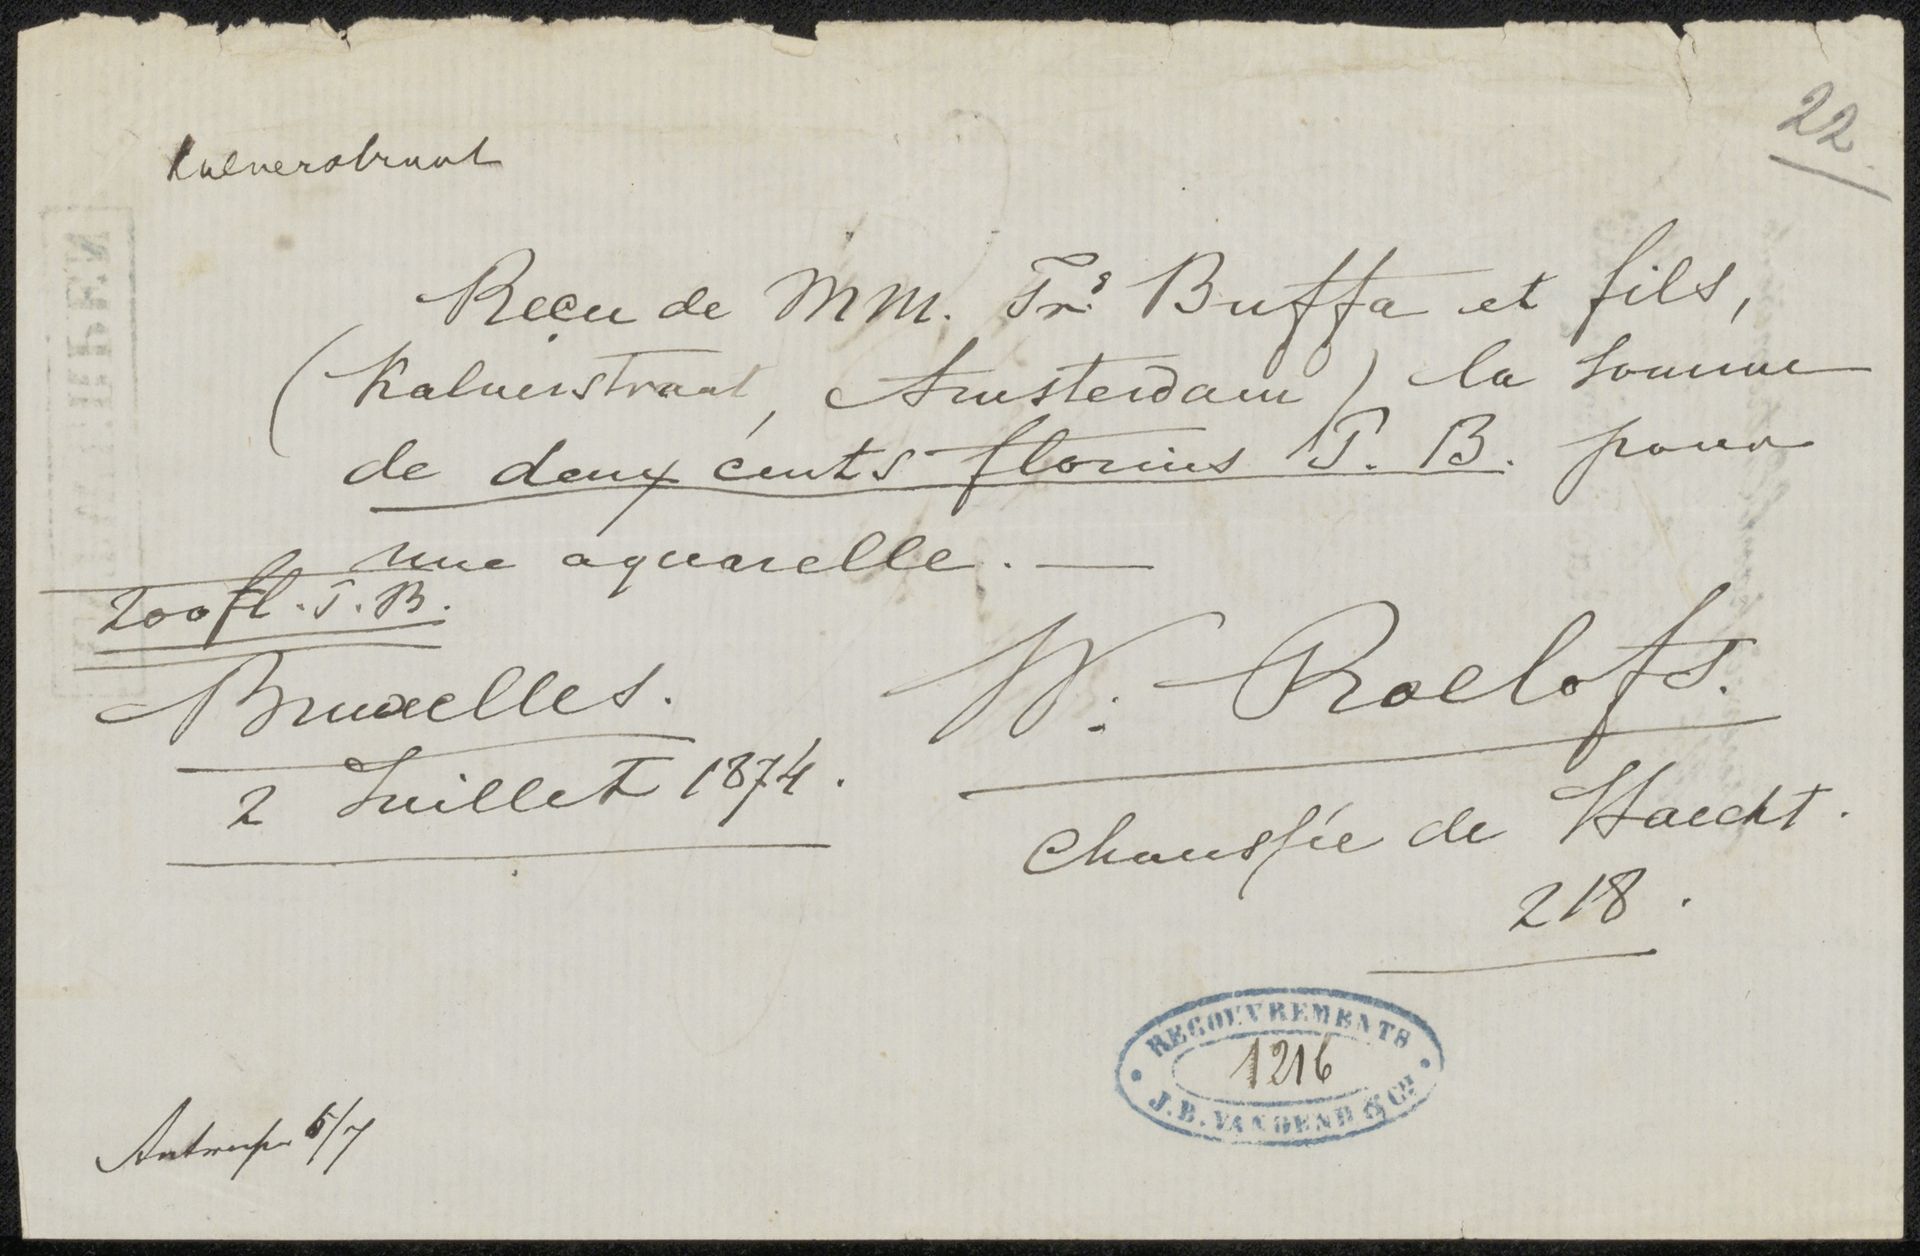 22
Kalverstraat
Reçu de MM. Frs Buffa et fils,
(Kalverstraat, Amsterdam) la somme
de deux cents florins P. B. pour
une aquarelle. —
200 fl. P. B.
Bruxelles.
2 Juillet 1874.
W. Roelofs.
Chaussée de Haecht.
218.
RECOUVREMENTS
1216
J. B. VAN DEN B & Cie
Antwerpen 6/7